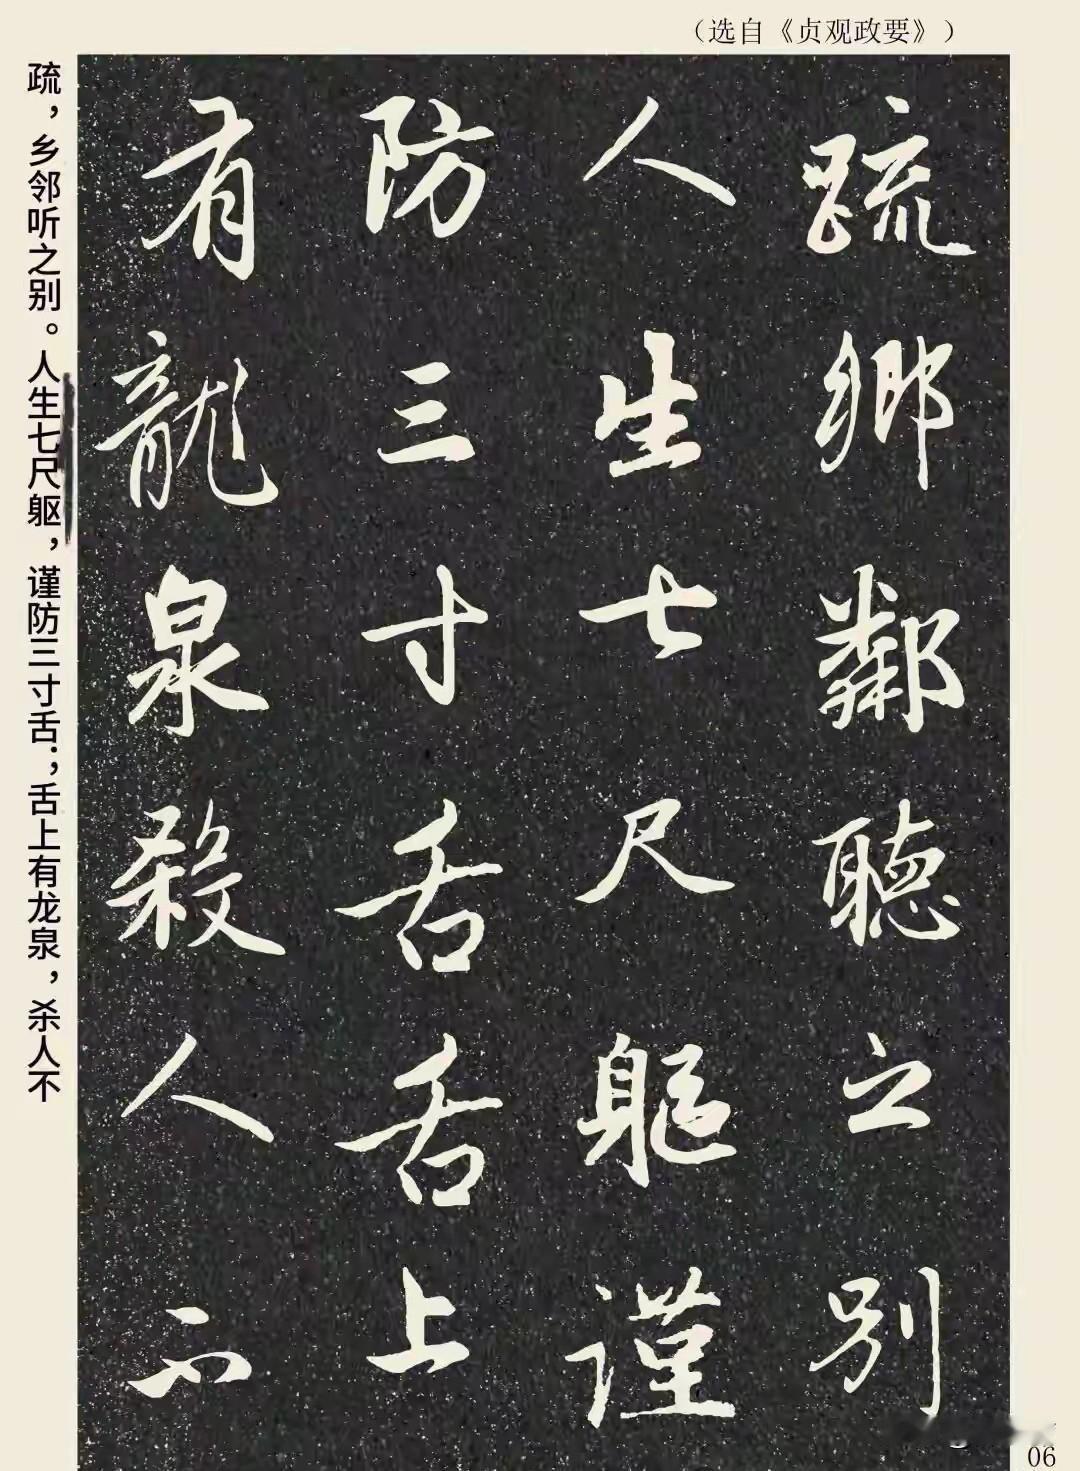 （选自《贞观政要》）
疏鄉鄰聽之别
人生七尺軀謹
防三寸舌舌上
有龍泉殺人不
疏，乡邻听之别。人生七尺躯，谨防三寸舌；舌上有龙泉，杀人不
06